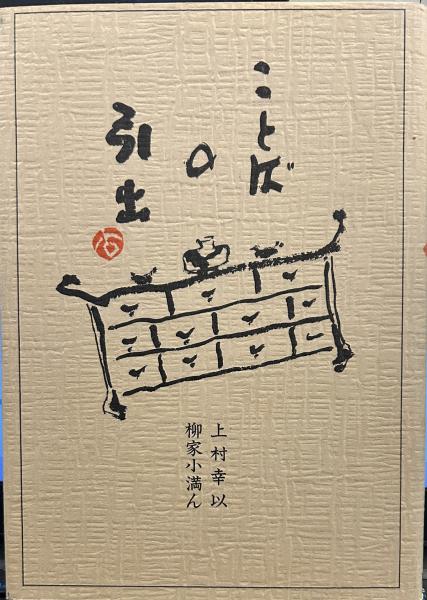 ことば
の
引出
上村幸以
柳家小満ん